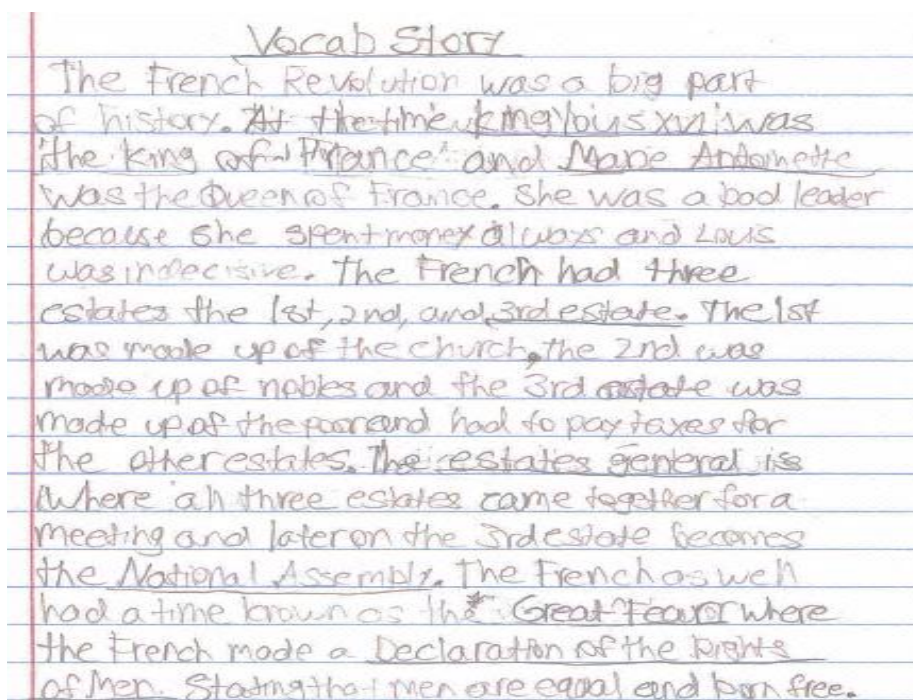 Vocab Story
The French Revolution was a big part
of history. At the time king louis xvi was
the king of France and Marie Antoinette
was the Queen of France. She was a bad leader
because she spent money always and Louis
was indecisive. The French had three
estates the 1st, 2nd, and 3rd estate. The 1st
was made up of the church, the 2nd was
made up of nobles and the 3rd estate was
made up of the poor and had to pay taxes for
the other estates. The estates general is
Where all three estates came together for a
meeting and later on the 3rd estate becomes
the National Assembly. The French as well
had a time known as the Great Fear where
the French made a Declaration of the Rights
of Men. Stating that men are equal and born free.